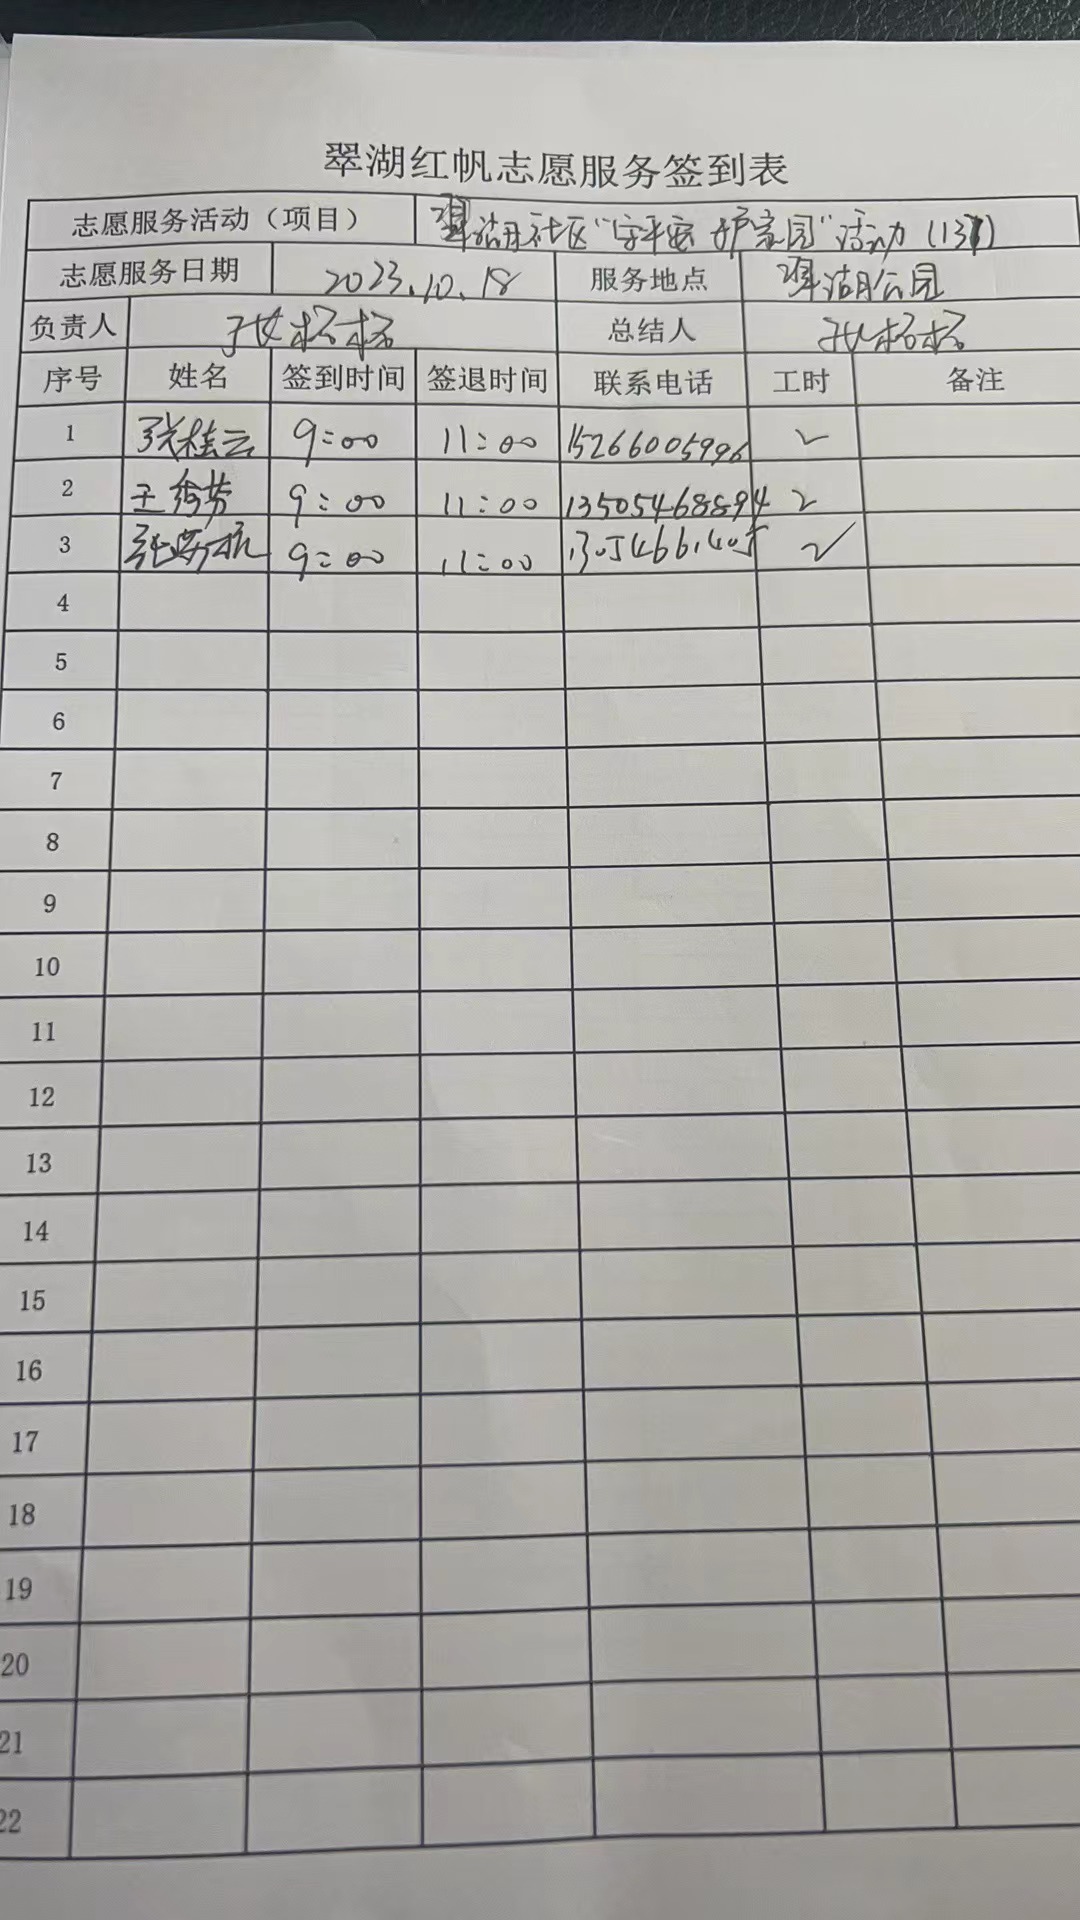 翠湖红帆志愿服务签到表
志愿服务活动（项目） 翠湖社区“守平安 护家园”活动（131）
志愿服务日期 2023.10.18 服务地点 翠湖公园
负责人 总结人
序号 姓名 签到时间 签退时间 联系电话 工时 备注
1 张桂云 9:00 11:00 15266005996 2
2 王秀芳 9:00 11:00 13505468894 2
3 9:00 11:00 2
4
5
6
7
8
9
10
11
12
13
14
15
16
17
18
19
20
21
22